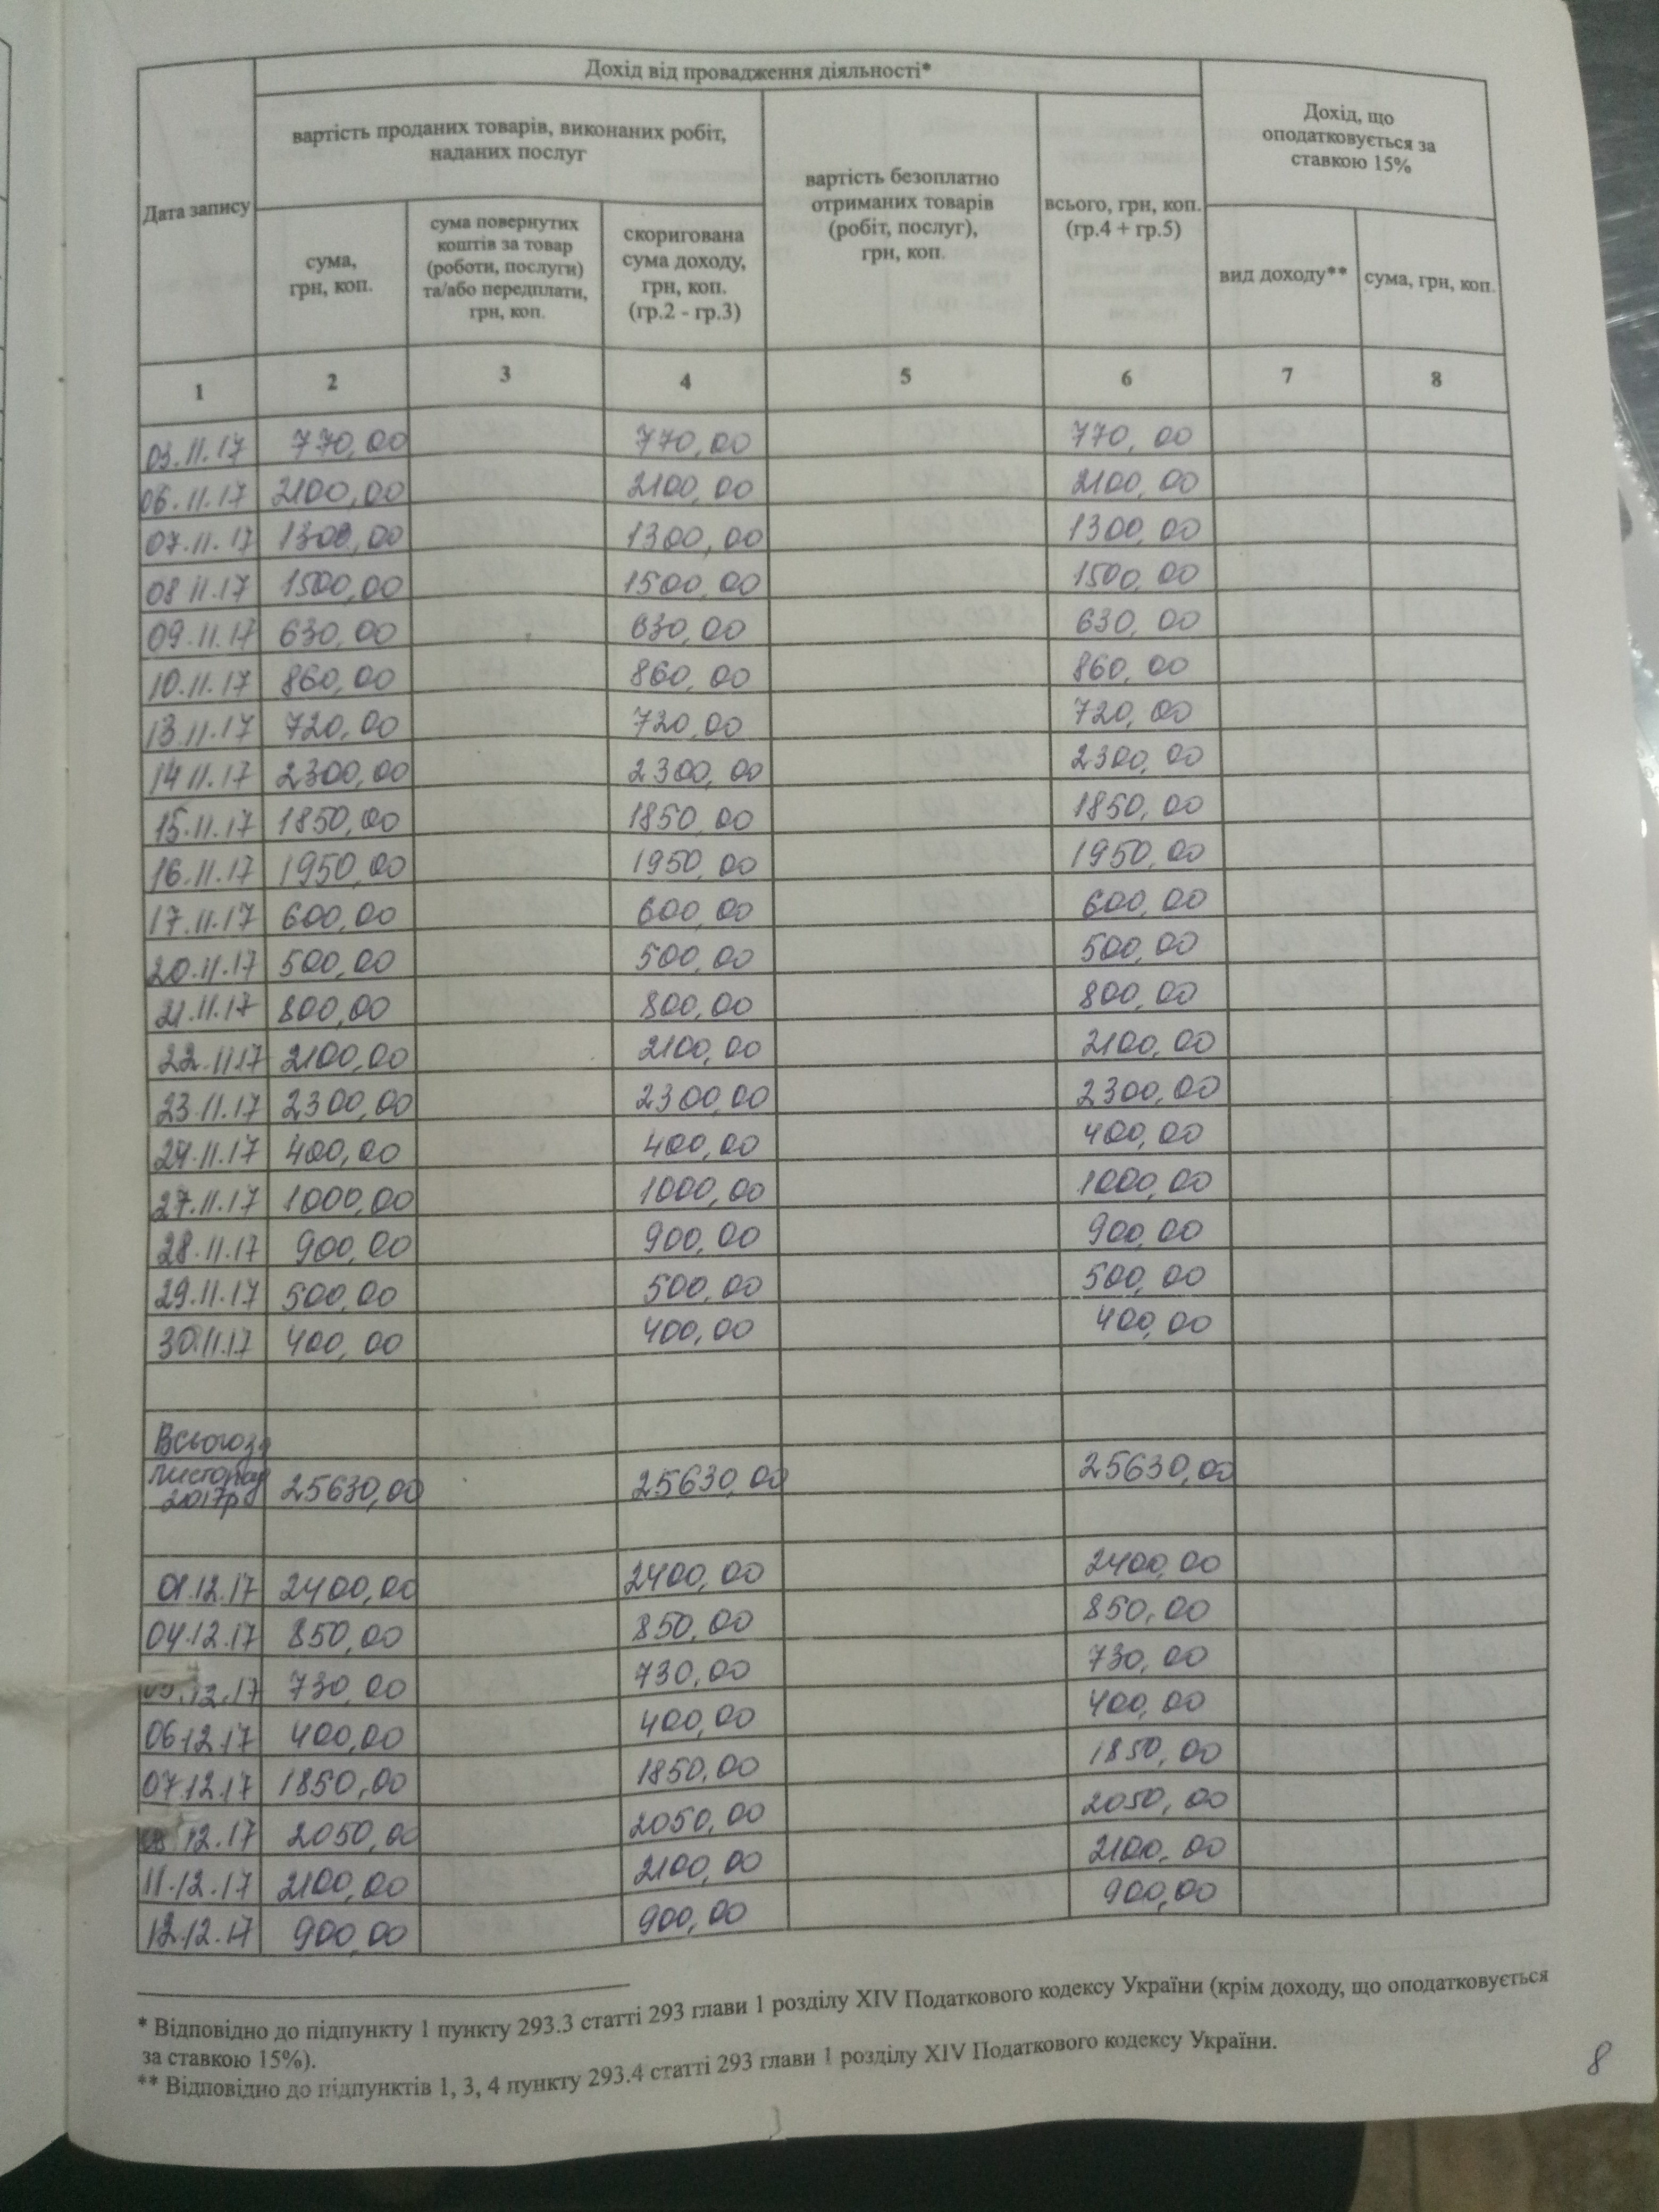 Дохід від провадження діяльності*
Дата запису
вартість проданих товарів, виконаних робіт,
наданих послуг
сума,
грн, коп.
сума повернутих
коштів за товар
(роботи, послуги)
та/або передплати,
грн, коп.
скоригована
сума доходу,
грн, коп.
(гр.2 - гр.3)
вартість безоплатно
отриманих товарів
(робіт, послуг),
грн, коп.
всього, грн, коп.
(гр.4 + гр.5)
Дохід, що
оподатковується за
ставкою 15%
вид доходу**
сума, грн, коп.
1 2 3 4 5 6 7 8
03.11.17 770,00 770,00 770,00
06.11.17 2100,00 2100,00 2100,00
07.11.17 1300,00 1300,00 1300,00
08 11.17 1500,00 1500,00 1500,00
09.11.17 630,00 630,00 630,00
10.11.17 860,00 860,00 860,00
13.11.17 720,00 720,00 720,00
14 11.17 2300,00 2300,00 2300,00
15.11.17 1850,00 1850,00 1850,00
16.11.17 1950,00 1950,00 1950,00
17.11.17 600,00 600,00 600,00
20.11.17 500,00 500,00 500,00
21.11.17 800,00 800,00 800,00
22.11.17 2100,00 2100,00 2100,00
23.11.17 2300,00 2300,00 2300,00
24.11.17 400,00 400,00 400,00
27.11.17 1000,00 1000,00 1000,00
28.11.17 900,00 900,00 900,00
29.11.17 500,00 500,00 500,00
30.11.17 400,00 400,00 400,00
Всього за
листопад
2017р 25630,00 25630,00 25630,00
01.12.17 2400,00 2400,00 2400,00
04.12.17 850,00 850,00 850,00
05.12.17 730,00 730,00 730,00
06.12.17 400,00 400,00 400,00
07.12.17 1850,00 1850,00 1850,00
08 12.17 2050,00 2050,00 2050,00
11.12.17 2100,00 2100,00 2100,00
12.12.17 900,00 900,00 900,00
* Відповідно до підпункту 1 пункту 293.3 статті 293 глави 1 розділу XIV Податкового кодексу України (крім доходу, що оподатковується
за ставкою 15%).
** Відповідно до підпунктів 1, 3, 4 пункту 293.4 статті 293 глави 1 розділу XIV Податкового кодексу України.
8